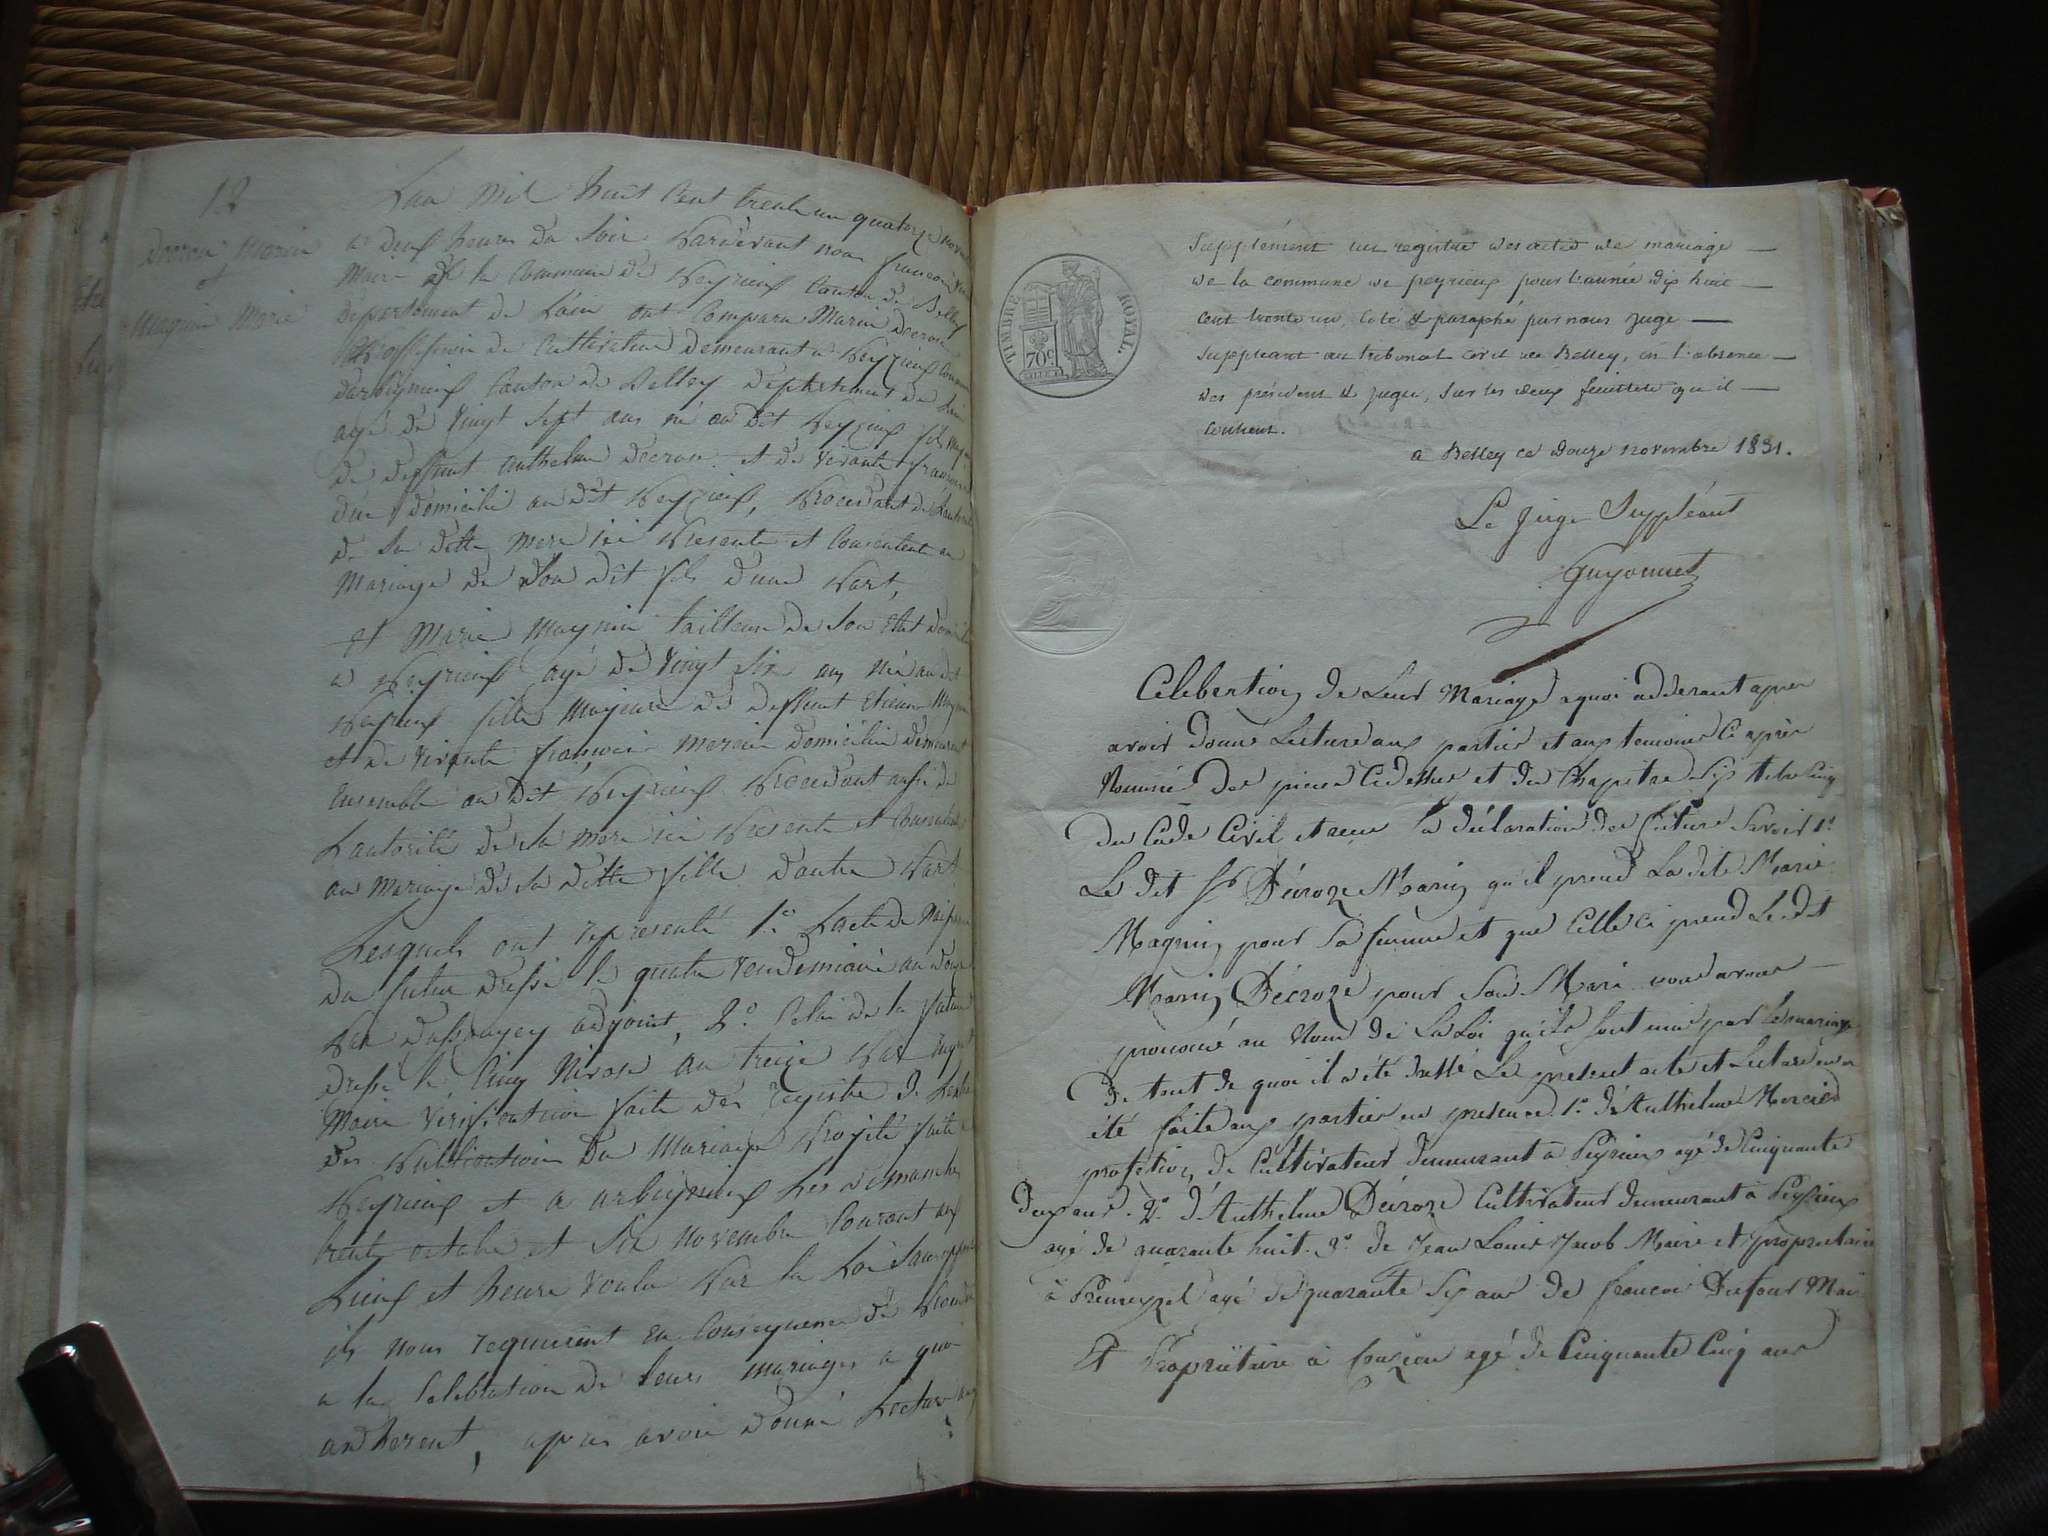 12
Decroze Marin
et
Magnin Marie
L'an Mil huit Cent trente un quatorze
a Deux heures du Soir Pardevant nous françois
Maire de la Commune de Peyrieux Canton de Belley
departement de L'ain ont Comparu Marin Decroze
Proffession de Cultivateur demeurant a Peyrieux
Darbignieux Canton de Belley departement de Lain
agé de Vingt Sept ans né au Dit Peyrieux fils
de deffunt Anthelme Decroze et de vivante
domicilié au dit Peyrieux, Procedant de
de Sa ditte mere ici Presente et Consentente au
Mariage de Son dit fils d'une Part,
et Marie Magnin tailleuse de Son Etat
a Peyrieux agé de Vingt Six ans né au dit
Peyrieux fille Majeure de deffunt Etienne
et de Vivante françoise domicilié demeurant
Ensemble au Dit Peyrieux Procedant aussi de
Lautorité de Sa mere ici Presente et
au Mariage de Sa ditte fille d'autre Part
Lesquels ont representé 1.º Lacte de
du futur dressé le quatre Vendemiaire an douze
Par adjoint, 2.º Celui de la future
dressé le Cinq Nivose an treize Par
Maire Vérification faite des registre
des Publication du Mariage Projeté faite
Peyrieux et a arbignieux Les dimanches
trente octobre et Six novembre Courant aux
Lieux et heure Voulu Par la Loi
ils nous requierent En Consequence de
a la Celebration de leurs mariages a quoi
andherent, apres avoir donné Lecture
TIMBRE ROYAL.
70c
Supplément au registre des actes de mariage —
de la commune de peyrieux pour l'année dix huit —
cent trente un, Coté & paraphé par nous juge —
suppléant au tribunal civil de Belley, en l'absence —
des président & juges, sur les deux feuillets qu'il —
contient.
a Belley ce douze novembre 1831.
Le Juge Suppléant
Guyonnet
Célébration de Leur Mariage aquoi adderant apres
avoir donné Lecture aux parties et aux temoins Ci après
Nommé Des pieces Cidessus et du Chapitre Six
du Code Civil et reçu la déclaration des future Savoir 1.º
Le dit Décroze Marin qu'il prend La dite Marie
Magnin pour Sa femme et que Celle Ci prend Le dit
Marin Décroze pour Son Mari nous avons —
prononcé au Nom de La Loi qu'ils Sont unis par le mariage
de tout de quoi il a été dressé Le présent acte et Lecture en a
été faite aux parties en presence 1.º d'Anthelme Mercier
profession de Cultivateur demeurant a Peyrieux agé de Cinquante
deux ans. 2.º d'Anthelme Décroze Cultivateur demeurant à Peyrieux
agé de quarante huit. 3.º de Jean Louis Jacob Maire et propriétaire
à Prémeyzel agé de quarante Six ans de françois Dufour
Et Propriétaire à agé de Cinquante Cinq ans